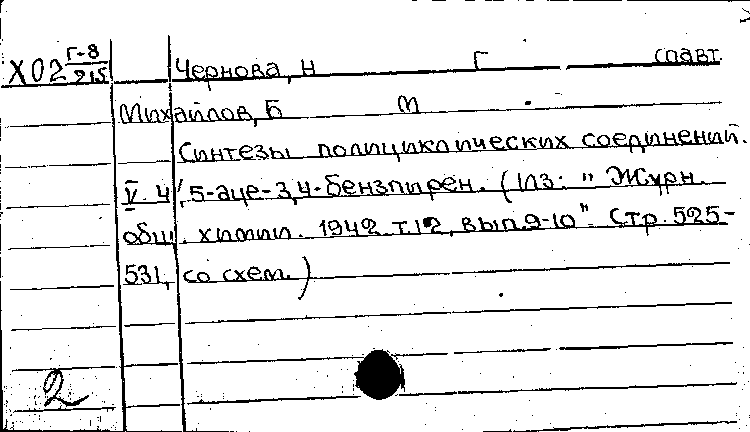 Х02 Г-8/215 Чернова, Н Г соавт
Михайлов, Б М
Синтезы полициклических соединений.
V. 4',5-аце-3,4-бензпирен. (Из: "Журн.
общ. химии. 1942 т.12, вып.9-10" Стр. 525-
531, со схем.)
2